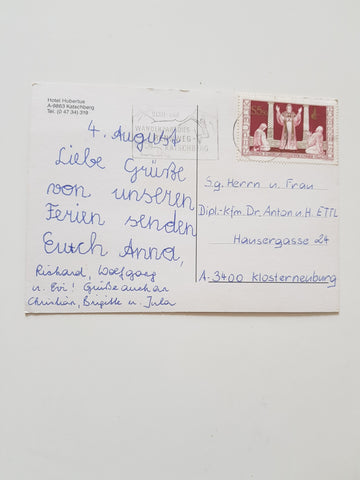 Hotel Hubertus
A-9863 Katschberg
Tel. (0 47 34) 319
4. August
Liebe Grüße
von unseren
Ferien senden
Euch Anna,
Richard, Wolfgang
u. Evi! Grüße auch an
Christian, Brigitte u. Jula
S.g. Herrn u. Frau
Dipl.-Kfm. Dr. Anton u. H. ETTL
Hausergasse 24
A-3400 Klosterneuburg